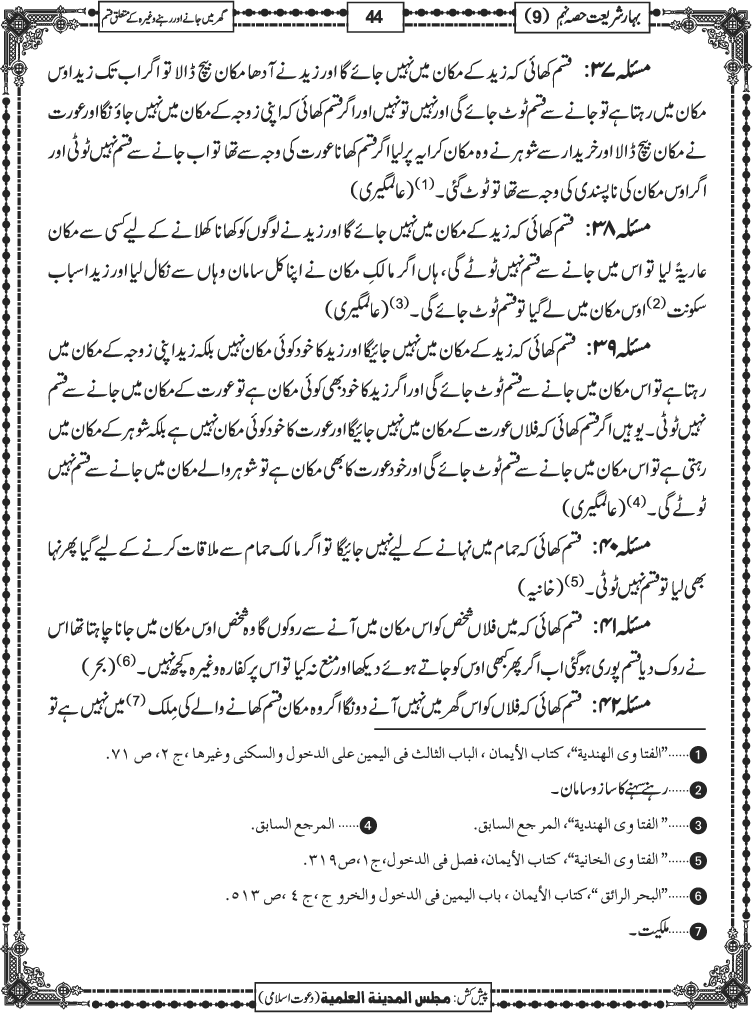 بہارِ شریعت حصہ نہم (9)
44
گھر میں جانے اور رہنے وغیرہ کے متعلق قسم
مسئلہ ۳۷: قسم کھائی کہ زید کے مکان میں نہیں جائے گا اور زید نے آدھا مکان بیچ ڈالا تو اگر اب تک زید اوس
مکان میں رہتا ہے تو جانے سے قسم ٹوٹ جائے گی اور نہیں تو نہیں اور اگر قسم کھائی کہ اپنی زوجہ کے مکان میں نہیں جاؤنگا اور عورت
نے مکان بیچ ڈالا اور خریدار سے شوہر نے وہ مکان کرایہ پر لیا اگر قسم کھانا عورت کی وجہ سے تھا تو اب جانے سے قسم نہیں ٹوٹی اور
اگر اوس مکان کی ناپسندی کی وجہ سے تھا تو ٹوٹ گئی۔(1) (عالمگیری)
مسئلہ ۳۸: قسم کھائی کہ زید کے مکان میں نہیں جائے گا اور زید نے لوگوں کو کھانا کھلانے کے لیے کسی سے مکان
عاریۃً لیا تو اس میں جانے سے قسم نہیں ٹوٹے گی، ہاں اگر مالکِ مکان نے اپنا کل سامان وہاں سے نکال لیا اور زید اسباب
سکونت(2) اوس مکان میں لے گیا تو قسم ٹوٹ جائے گی۔(3) (عالمگیری)
مسئلہ ۳۹: قسم کھائی کہ زید کے مکان میں نہیں جائیگا اور زید کا خود کوئی مکان نہیں بلکہ زید اپنی زوجہ کے مکان میں
رہتا ہے تو اس مکان میں جانے سے قسم ٹوٹ جائے گی اور اگر زید کا خود بھی کوئی مکان ہے تو عورت کے مکان میں جانے سے قسم
نہیں ٹوٹی۔ یوہیں اگر قسم کھائی کہ فلاں عورت کے مکان میں نہیں جائیگا اور عورت کا خود کوئی مکان نہیں ہے بلکہ شوہر کے مکان میں
رہتی ہے تو اس مکان میں جانے سے قسم ٹوٹ جائے گی اور خود عورت کا بھی مکان ہے تو شوہر والے مکان میں جانے سے قسم نہیں
ٹوٹے گی۔(4) (عالمگیری)
مسئلہ ۴۰: قسم کھائی کہ حمام میں نہانے کے لیے نہیں جائیگا تو اگر مالک حمام سے ملاقات کرنے کے لیے گیا پھر نہا
بھی لیا تو قسم نہیں ٹوٹی۔(5) (خانیہ)
مسئلہ ۴۱: قسم کھائی کہ میں فلاں شخص کو اس مکان میں آنے سے روکوں گا وہ شخص اوس مکان میں جانا چاہتا تھا اس
نے روک دیا قسم پوری ہوگئی اب اگر پھر کبھی اوس کو جاتے ہوئے دیکھا اور منع نہ کیا تو اس پر کفارہ وغیرہ کچھ نہیں۔(6) (بحر)
مسئلہ ۴۲: قسم کھائی کہ فلاں کو اس گھر میں نہیں آنے دونگا اگر وہ مکان قسم کھانے والے کی مِلک(7) میں نہیں ہے تو
1......"الفتاوی الهندية"، كتاب الأيمان ، الباب الثالث فی اليمين علی الدخول والسكنی وغيرها ،ج ٢، ص ٧١.
2......رہنے سہنے کا ساز و سامان۔
3......"الفتاوی الهندية"، المرجع السابق.
4......المرجع السابق.
5......"الفتاوی الخانية"، كتاب الأيمان، فصل فی الدخول،ج١،ص٣١٩.
6......"البحر الرائق"،كتاب الأيمان ، باب اليمين فی الدخول والخروج ،ج ٤ ،ص ٥١٣.
7......ملکیت۔
پیش کش: مجلس المدينة العلمية (دعوت اسلامی)